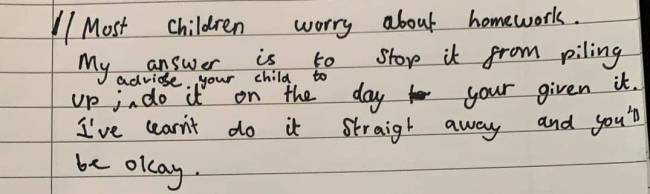 // Most children worry about homework.
My answer is to stop it from piling
advidse your child to
up ; ^ do it on the day your given it.
I've learn't do it straigt away and you'll
be okay.